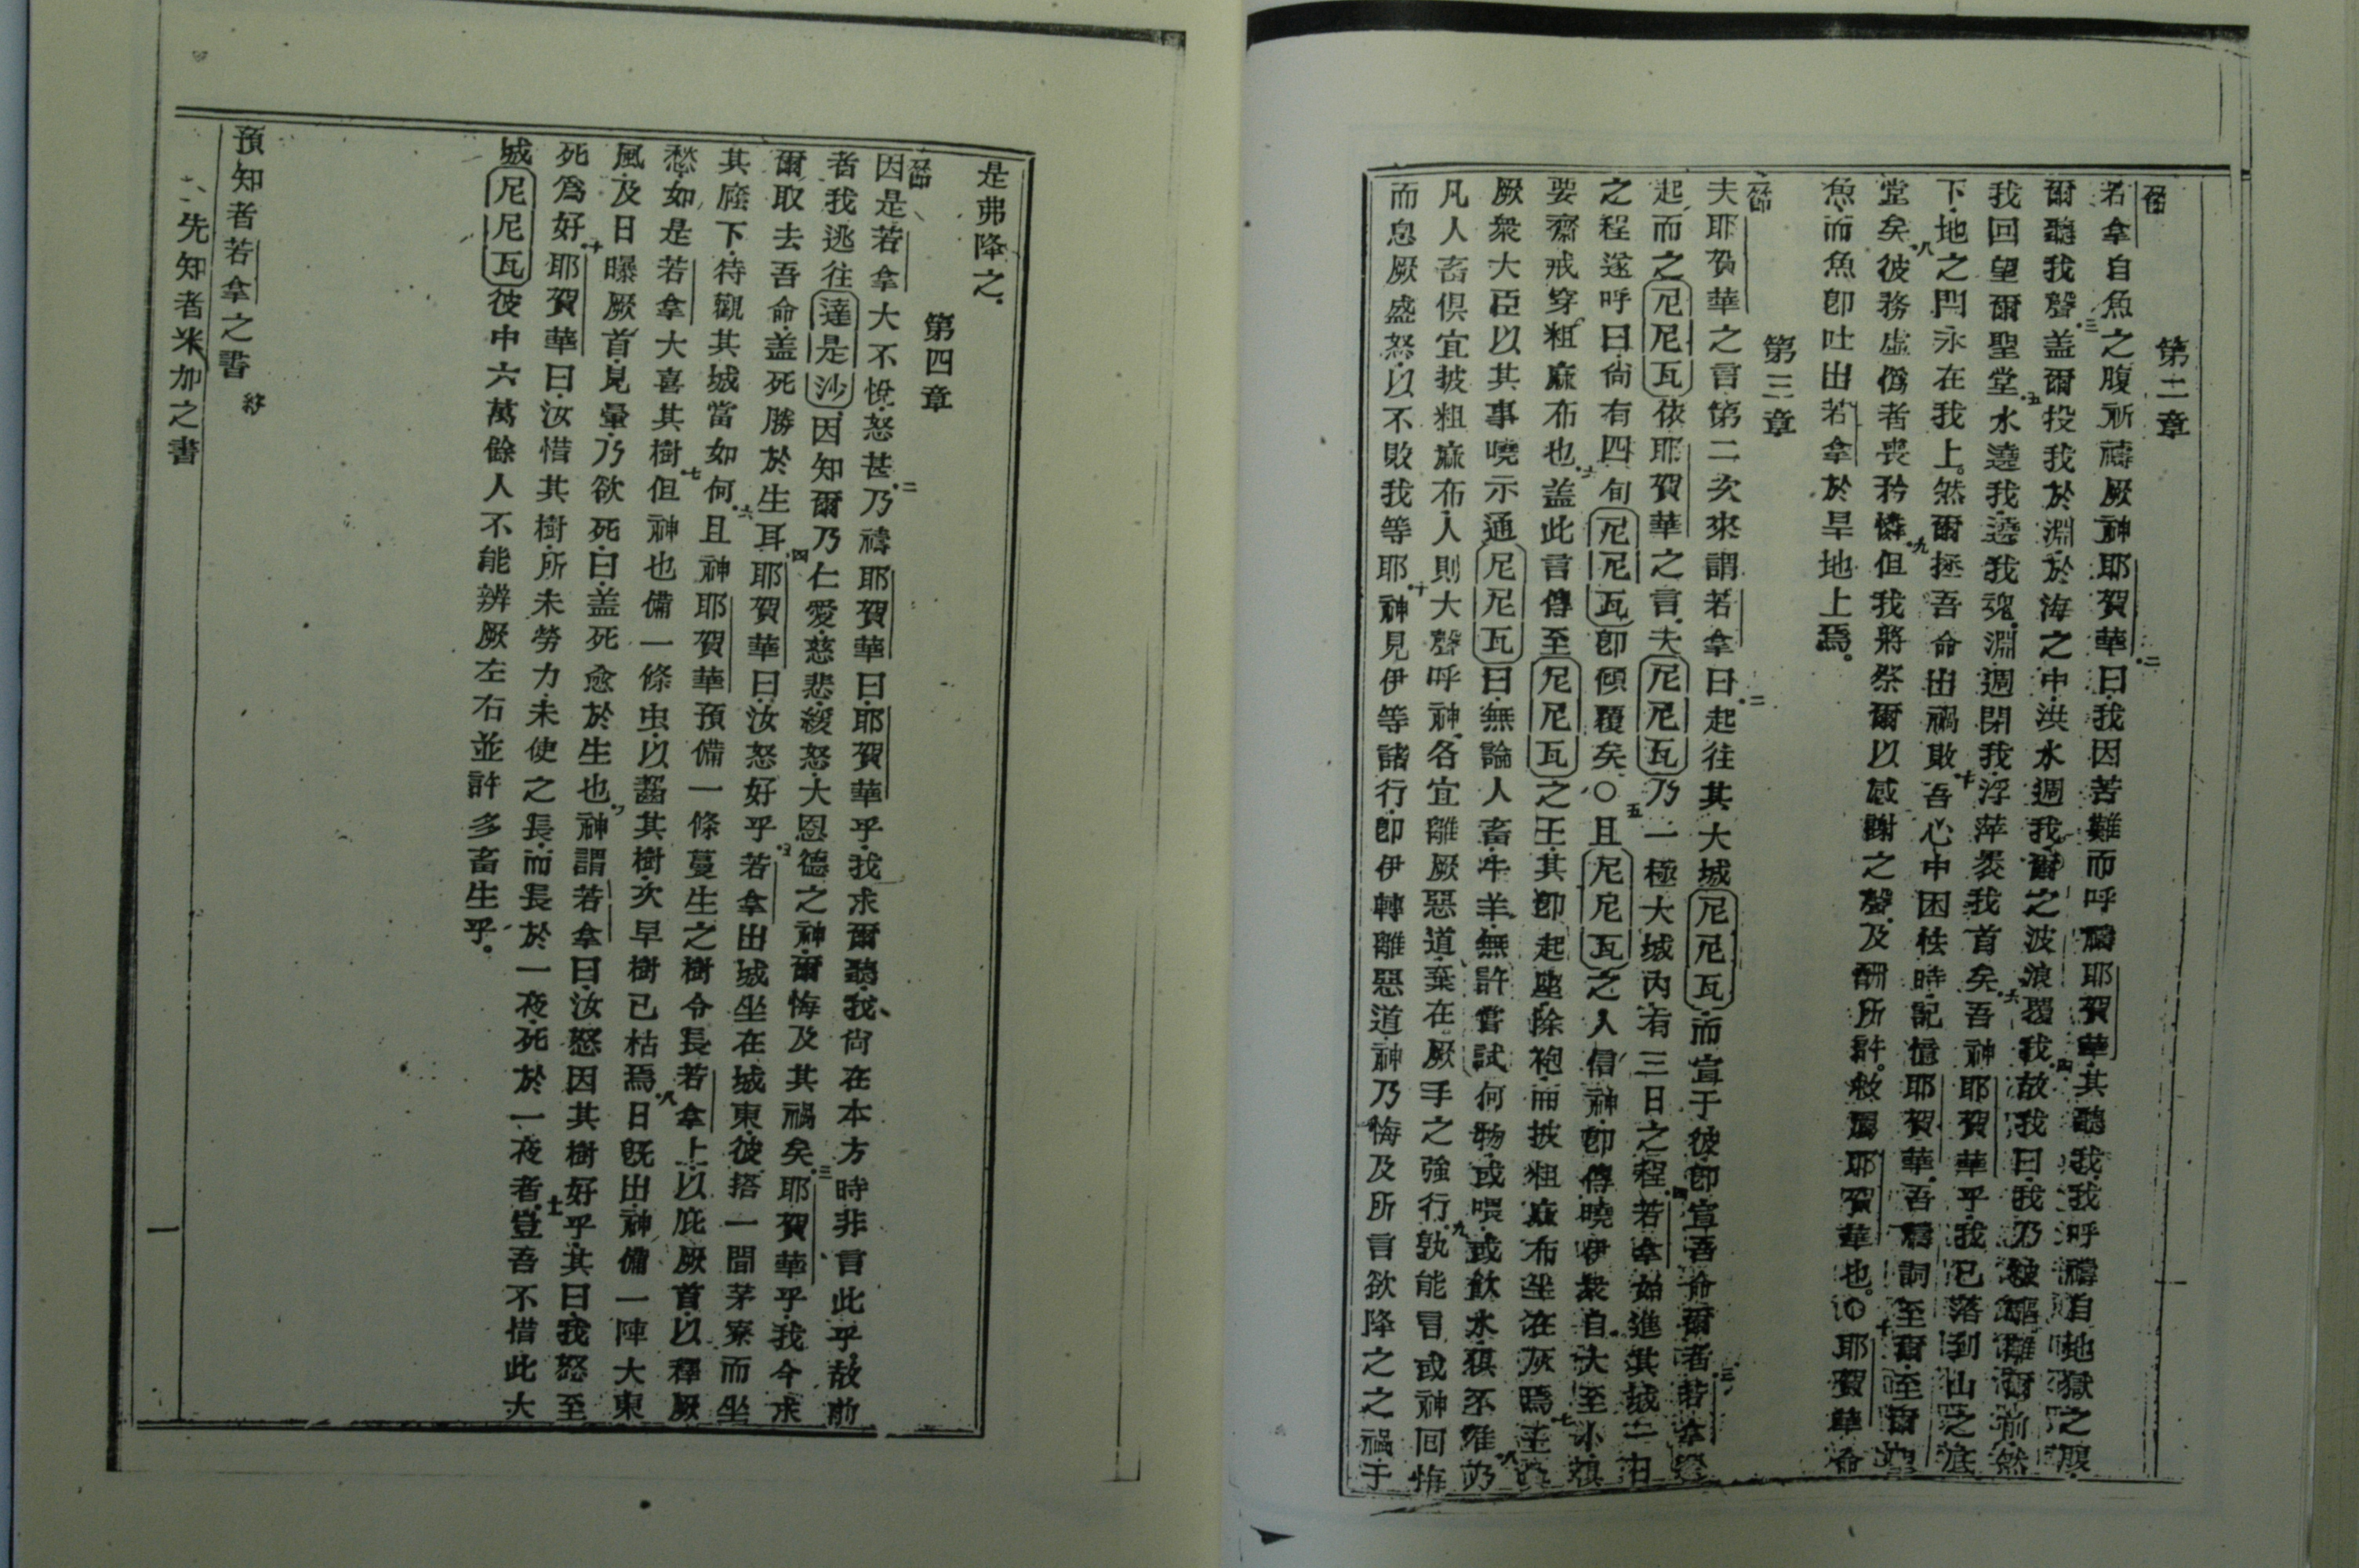 第二章
若拿自魚之腹祈禱厥神耶賀華曰我因苦難而呼禱耶賀華其聽我我呼禱自地獄之腹
爾聽我聲三盖爾投我於淵於海之中洪水週我爾之波浪覆我四故我曰我乃被驅離爾前然
我回望爾聖堂五水遶我遶我魂淵週閉我浮萍褁我首矣六吾神耶賀華乎我已落到山之底
下地之閂永在我上然爾拯吾命出禍敗吾心中困怯時記憶耶賀華吾禱詞至爾至爾聖
堂矣八彼務虛僞者喪矜憐九但我將祭爾以感謝之聲及酬所許救屬耶賀華也〇十耶賀華命
魚而魚卽吐出若拿於旱地上焉
第三章
夫耶賀華之言第二次來謂若拿曰二起往其大城尼尼瓦而宣于彼卽宣吾命爾者三若拿
起而之尼尼瓦依耶賀華之言夫尼尼瓦乃一極大城內有三日之程四若拿始進其城一日
之程遂呼曰尙有四旬尼尼瓦卽傾覆矣〇五且尼尼瓦之人信神卽傳曉伊衆自大至小俱
要齋戒穿粗麻布也六盖此言傳至尼尼瓦之王其卽起座除袍而披粗麻布坐在灰焉七王與
厥衆大臣以其事曉示通尼尼瓦曰無論人畜牛羊無許嘗試何物或喂或飲水八俱不准乃
凡人畜俱宜披粗麻布人則大聲呼神各宜離厥惡道棄在厥手之強行九孰能冒或神回悔
而息厥盛怒以不敗我等耶十神見伊等諸行卽伊轉離惡道神乃悔及所言欲降之之禍于
是弗降之
第四章
因是若拿大不悅怒甚二乃禱耶賀華曰耶賀華乎我求爾聽我尙在本方時非言此乎故前
者我逃往達是沙因知爾乃仁愛慈悲緩怒大恩德之神爾悔及其禍矣三耶賀華乎我今求
爾取去吾命盖死勝於生耳四耶賀華曰汝怒好乎五若拿出城坐在城東彼搭一間茅寮而坐
其廕下待觀其城當如何六且神耶賀華預備一條蔓生之樹令長若拿上以庇厥首以釋厥
愁如是若拿大喜其樹七但神也備一條虫以齧其樹次早樹已枯焉八日旣出神備一陣大東
風及日曝厥首見暈乃欲死曰盖死愈於生也九神謂若拿曰汝怒因其樹好乎其曰我怒至
死爲好十耶賀華曰汝惜其樹所未勞力未使之長而長於一夜死於一夜者十一豈吾不惜此大
城尼尼瓦彼中六萬餘人不能辨厥左右並許多畜生乎
預知者若拿之書 終
先知者米加之書
一